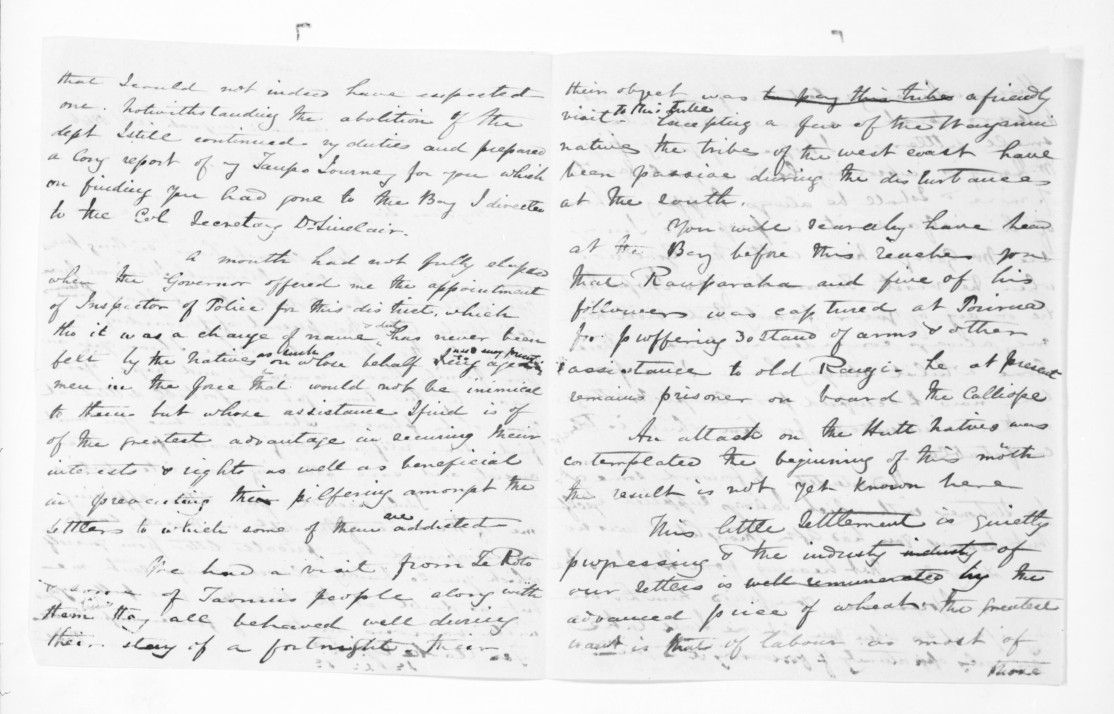 that I could not indeed have expected
one. Notwithstanding the abolition of the
dept I still continued my duties and prepared
a long report of my Taupo Journey for you which
on finding you had gone to the Bay I directed
to the Col Secretary Dr Sinclair.
A month had not fully elapsed
when the Governor offered me the appointment
of Inspector of Police for this district, which
tho it was a change of name & duty has never been
felt by the natives as such on whose behalf I
men in the force that would not be inimical
to them but whose assistance I find is of
of the greatest advantage in securing their
interests & rights as well as beneficial
in preventing their pilfering amongst the
settlers to which some of them are addicted
We had a visit from Te Roto
& some of Taonuis people along with
them they all behaved well during
their stay of a fortnight their
their object was to pay this tribe a friendly
visit to this tribe Excepting a few of the Wanganui
natives the tribes of the west coast have
been passive during the disturbances
at the south.
You will scarcely have heard
at the Bay before this reaches you
that Rauparaha and five of his
followers was captured at Porirua
for proffering 30 stand of arms & other
assistance to old Rangi - he at present
remains prisoner on board the Calliope
An attack on the Hutt natives was
contemplated the beginning of this month
the result is not yet known here
This little settlement is quietly
progressing & the industry industry of
our settlers is well remunerated by the
advanced price of wheat. The greatest
want is that of labour as most of
those